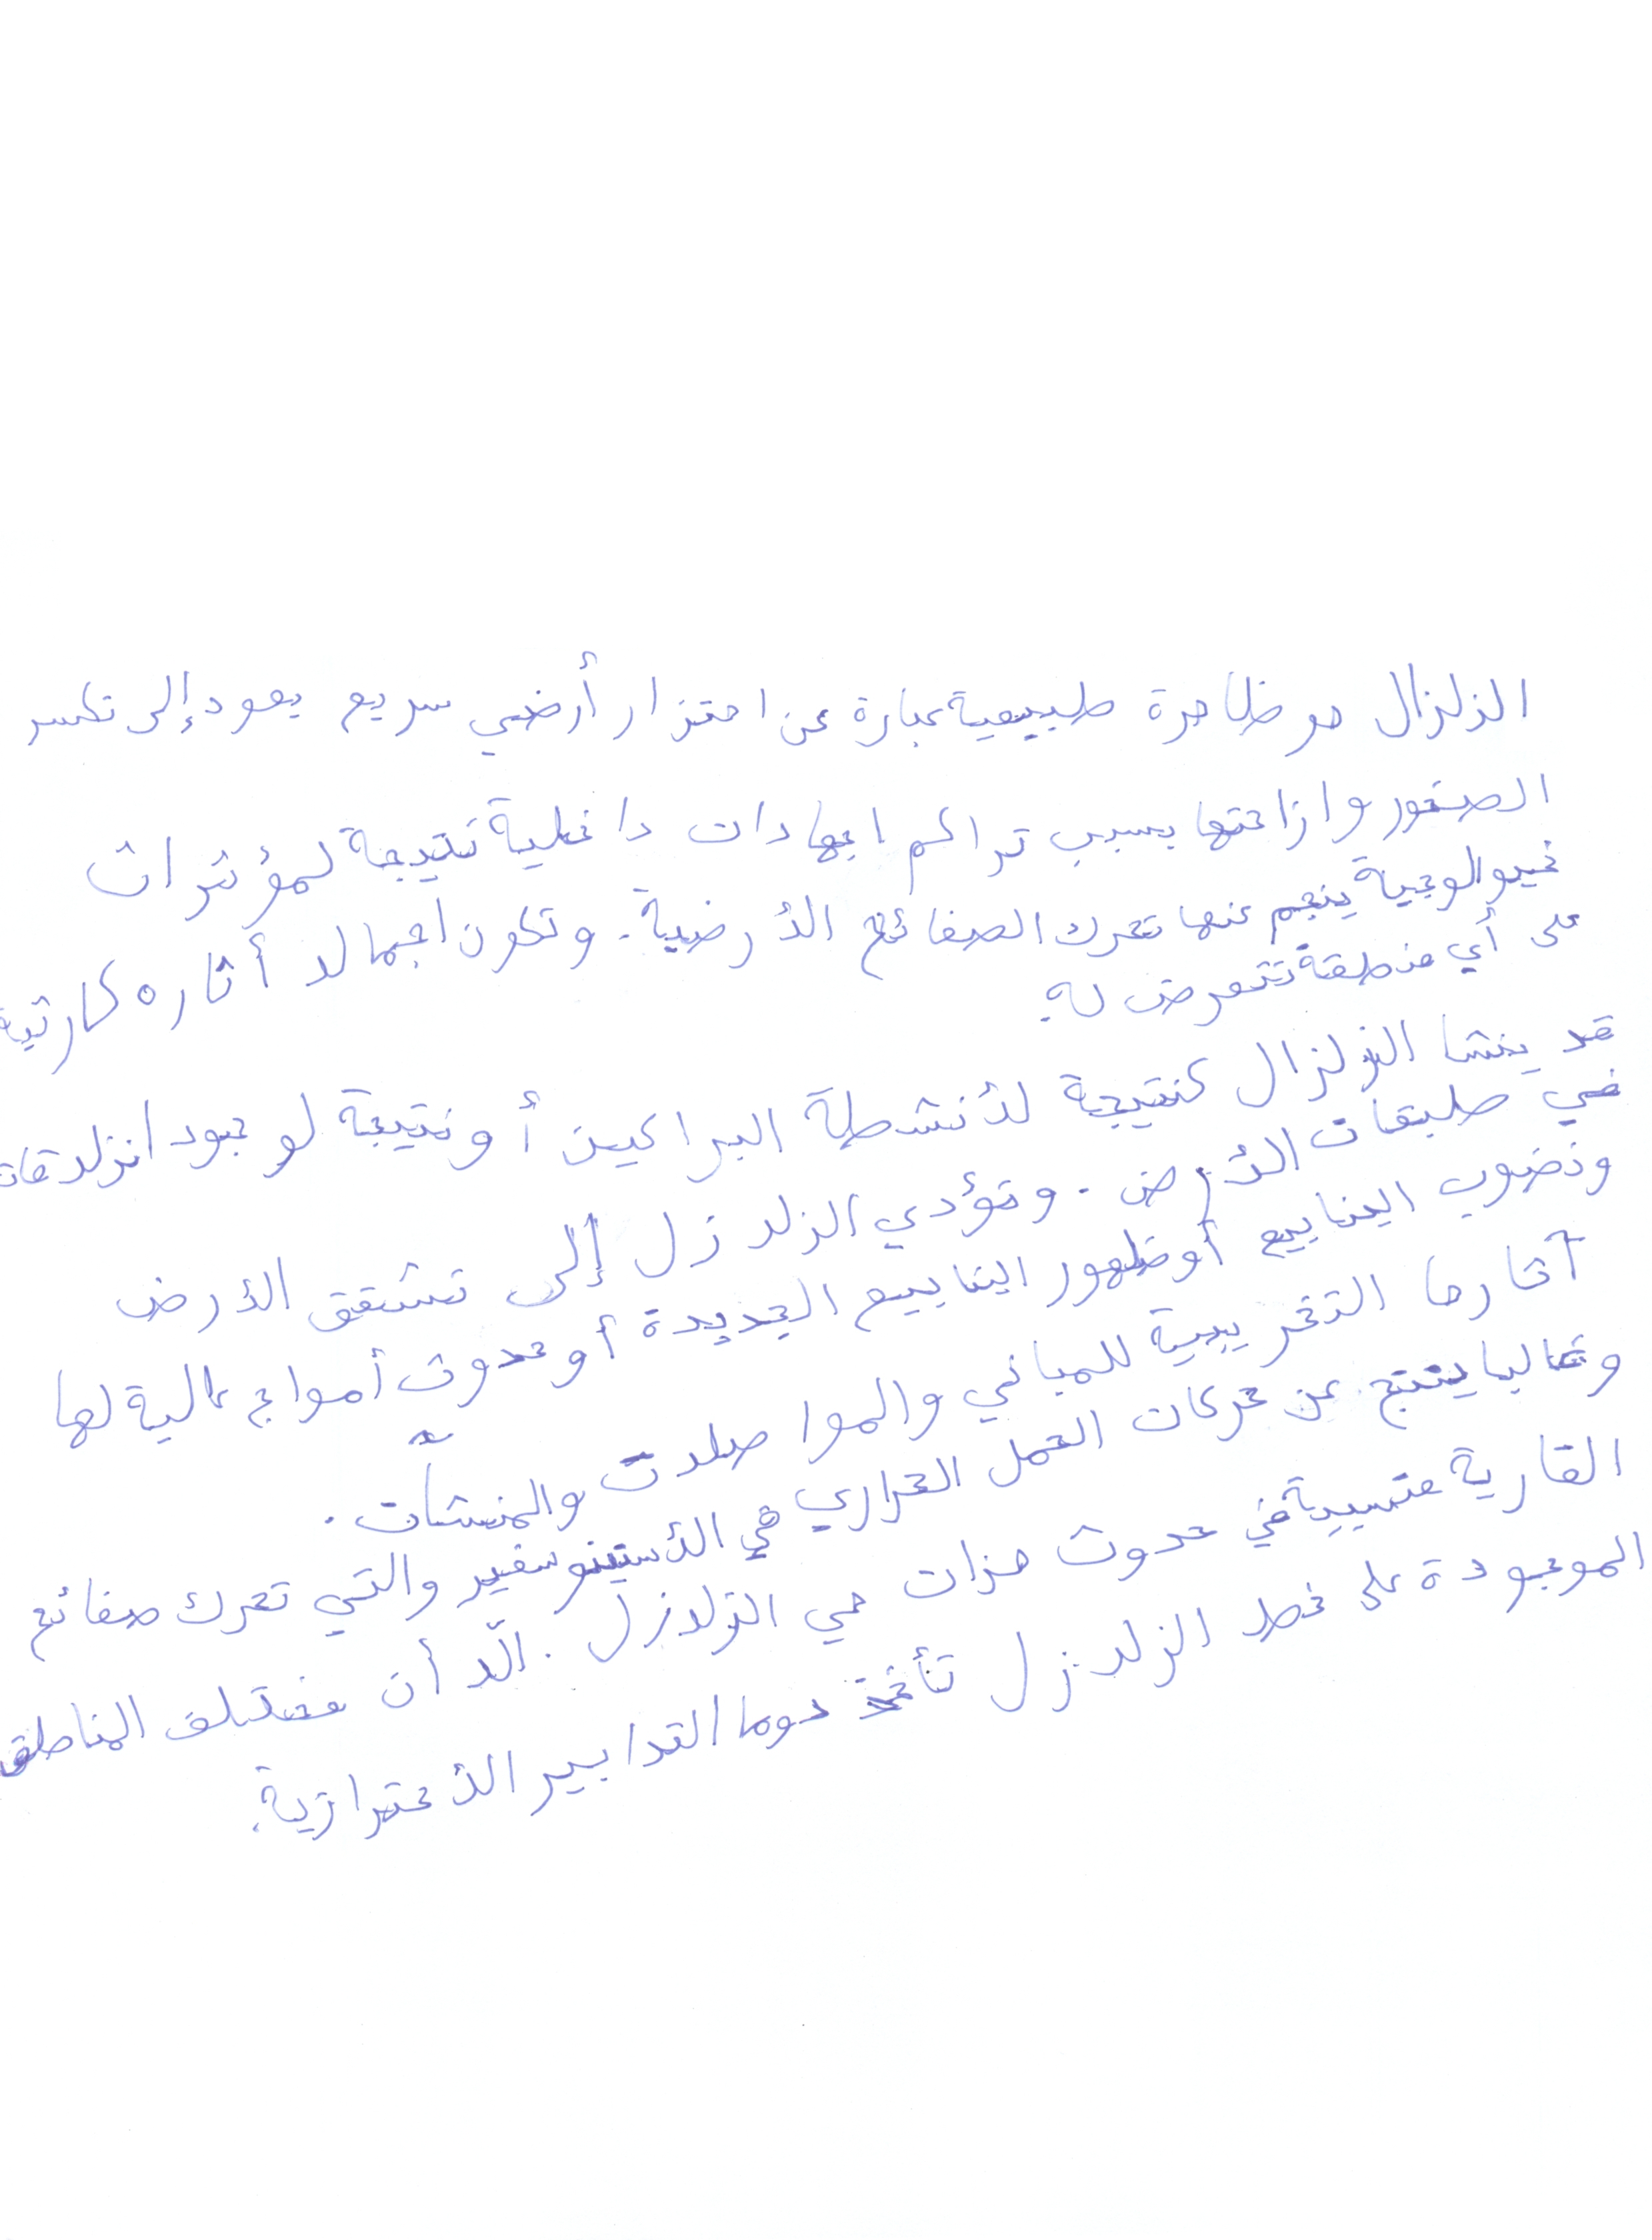 الزلزال هو ظاهرة طبيعية عبارة عن اهتزاز أرضي سريع يعود إلى تكسر
الصخور وازاحتها بسبب تراكم اجهادات داخلية نتيجة لمؤثرات
جيولوجية ينجم عنها تحرك الصفائح الأرضية. وتكون اجمالا أثاره كارثية
على أي منطقة تتعرض له.
قد ينشا الزلزال كنتيجة لأنشطة البراكين أو نتيجة لوجود انزلاقات
في طبقات الأرض. وتؤدي الزلازل إلى تشقق الأرض
ونضوب الينابيع أو ظهور الينابيع الجديدة أو حدوث أمواج عالية لها
آثارها التخريبية للمباني والمواصلات والمنشآت.
وغالبا ينتج عن حركات الحمل الحراري في الأستينوسفير والتي تحرك صفائح
القارية متسببة في حدوث هزات هي الزلازل. الّا أن مختلف المناطق
الموجودة على خط الزلازل تأخذ دوما التدابير الأحترازية.